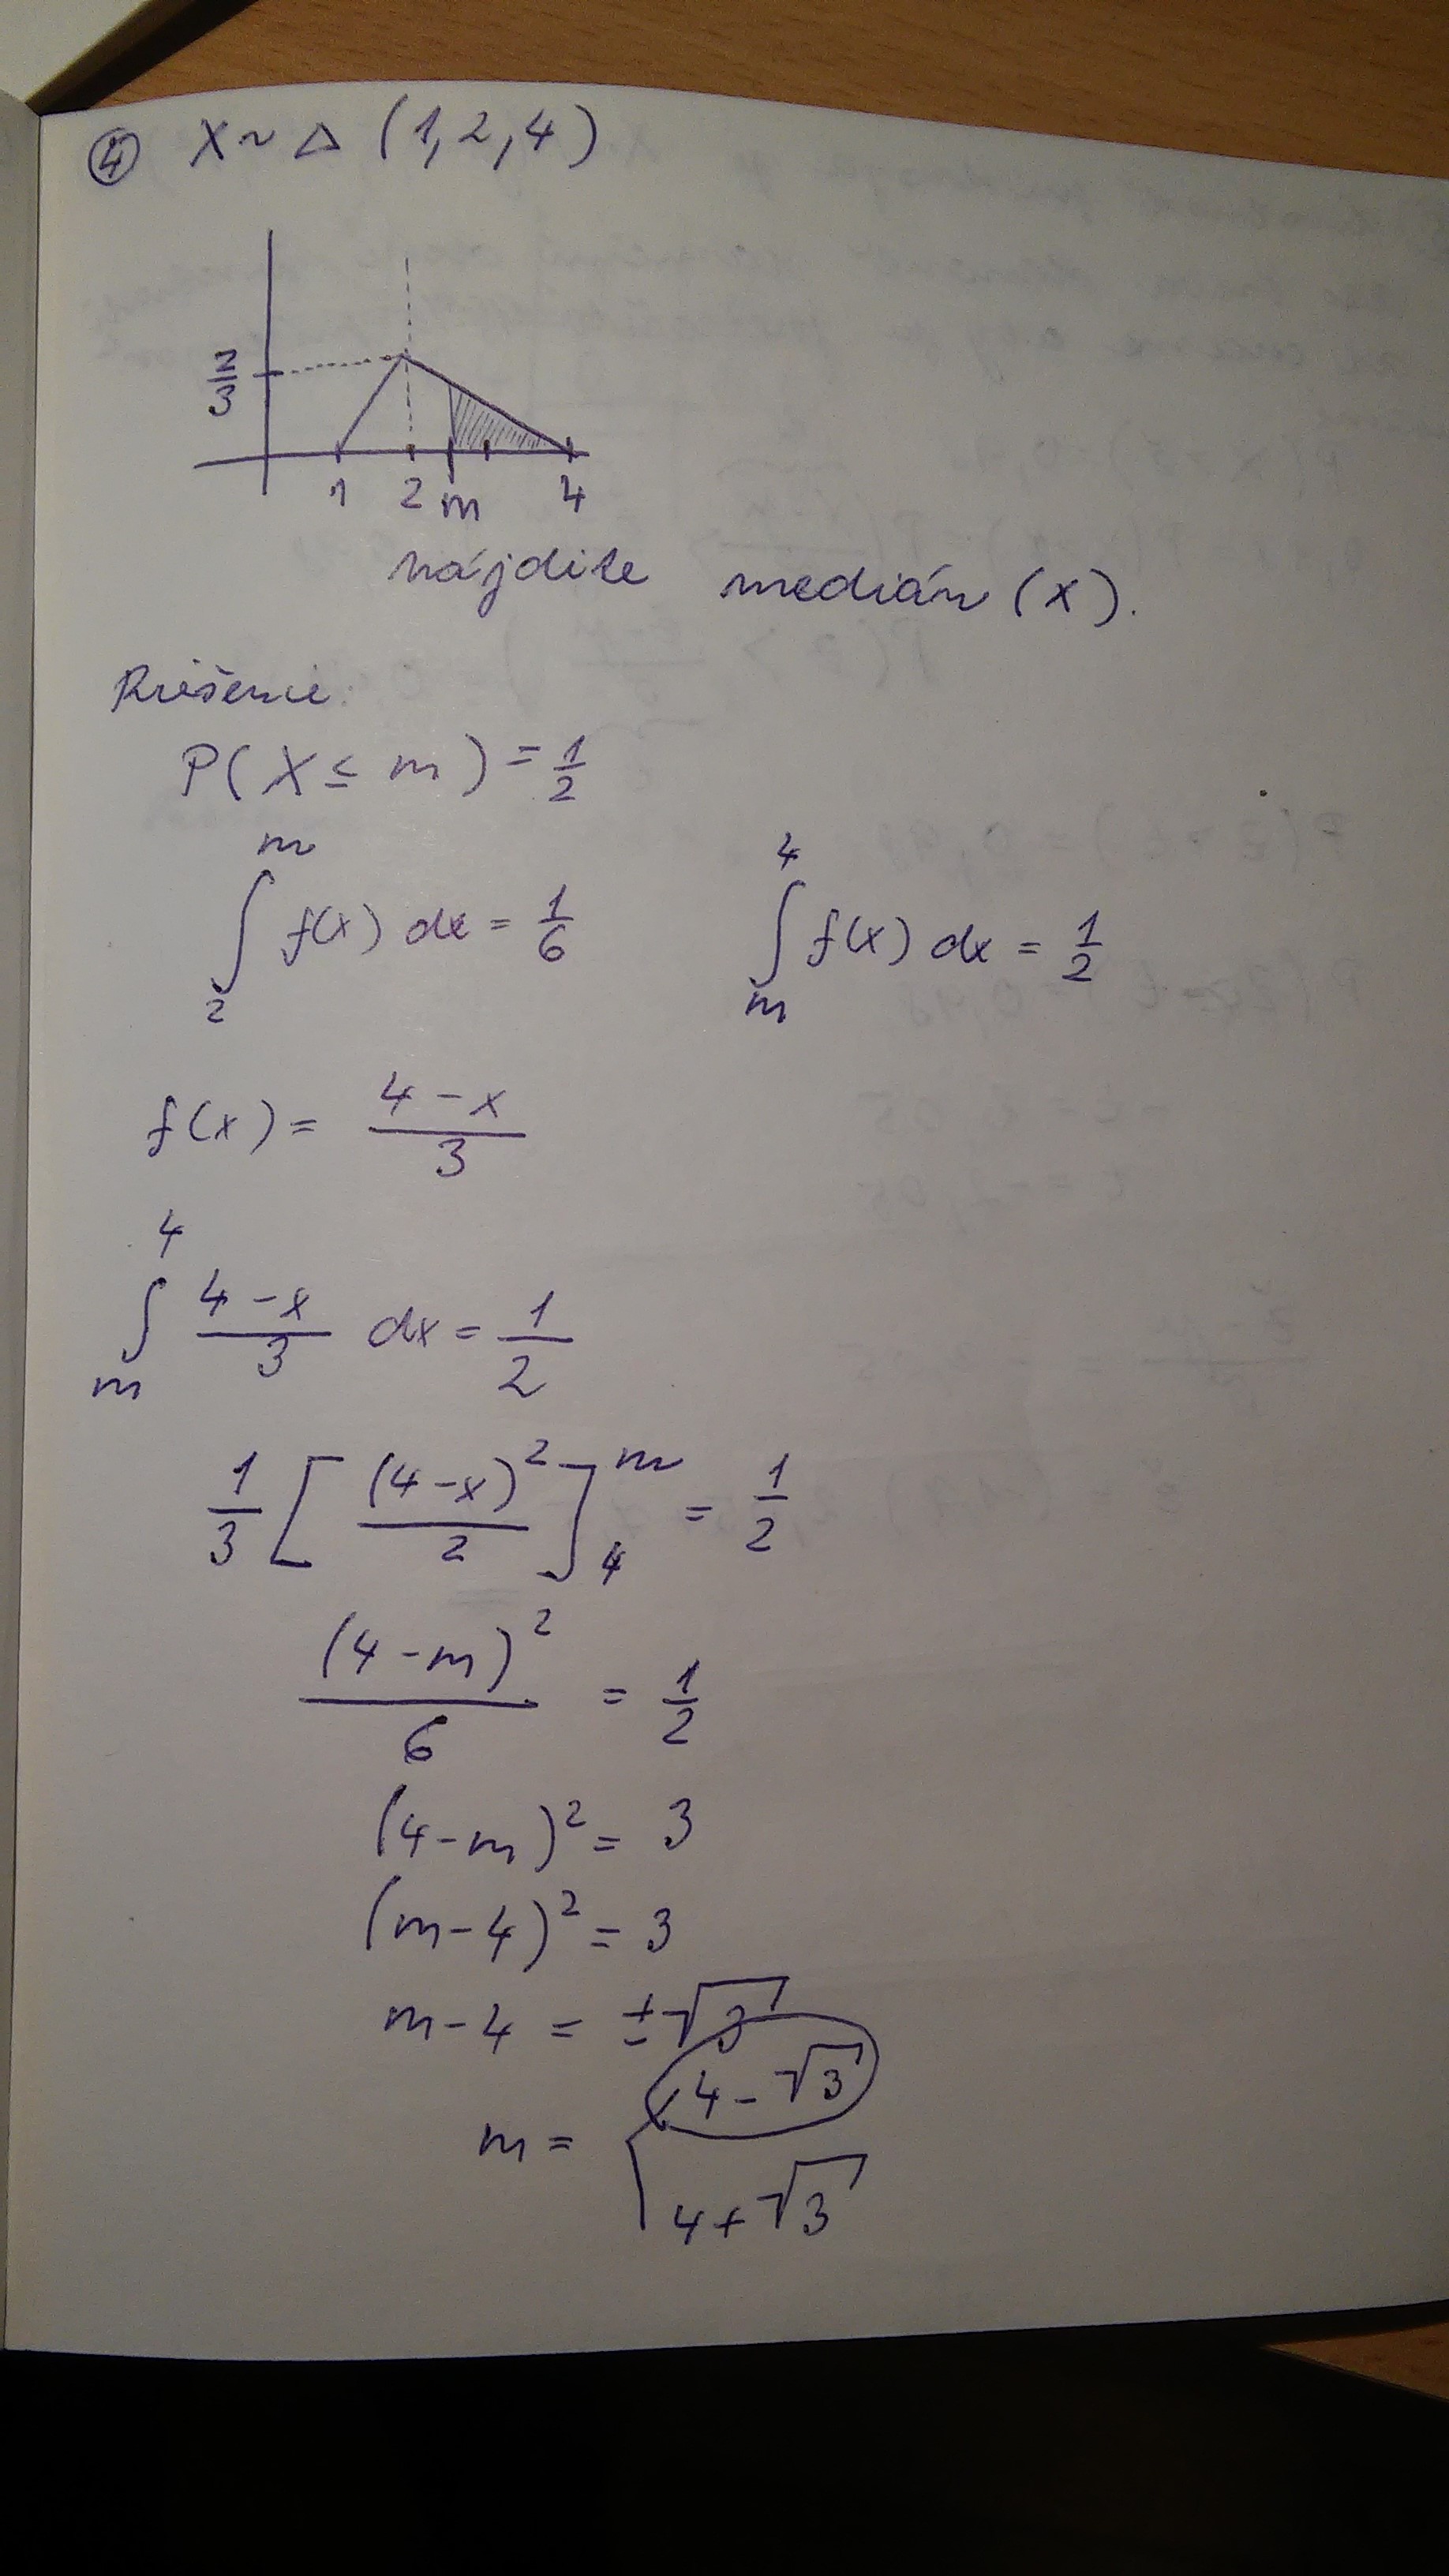 ④ X ~ Δ (1,2,4)
2/3
1 2 m 4
nájdite medián (X).
Riešenie:
P(X ≤ m) = 1/2
∫₂^m f(x) dx = 1/6 ∫_m^4 f(x) dx = 1/2
f(x) = (4-x)/3
∫_m^4 (4-x)/3 dx = 1/2
1/3 [(4-x)²/2]_4^m = 1/2
(4-m)²/6 = 1/2
(4-m)² = 3
(m-4)² = 3
m-4 = ±√3
m = 4-√3
4+√3